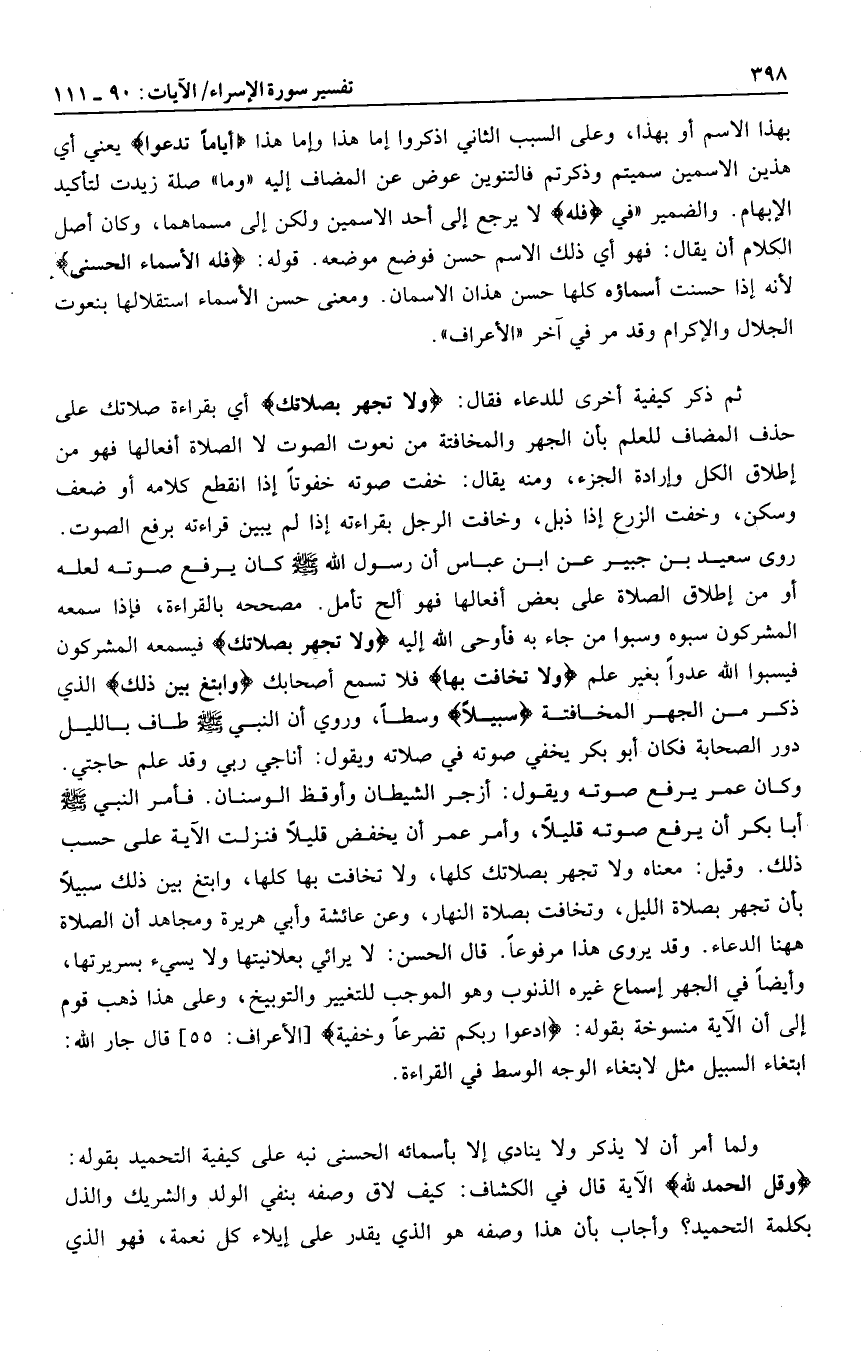 ٣٩٨
تفسير سورة الإسراء/ الآيات: ٩٠ ـ ١١١
بهذا الاسم أو بهذا، وعلى السبب الثاني اذكروا إما هذا وإما هذا ﴿أياماً تدعوا﴾ يعني أي
هذين الاسمين سميتم وذكرتم فالتنوين عوض عن المضاف إليه «وما» صلة زيدت لتأكيد
الإبهام. والضمير «في ﴿فله﴾ لا يرجع إلى أحد الاسمين ولكن إلى مسماهما، وكان أصل
الكلام أن يقال: فهو أي ذلك الاسم حسن فوضع موضعه. قوله: ﴿فله الأسماء الحسنى﴾
لأنه إذا حسنت أسماؤه كلها حسن هذان الاسمان. ومعنى حسن الأسماء استقلالها بنعوت
الجلال والإكرام وقد مر في آخر «الأعراف».
ثم ذكر كيفية أخرى للدعاء فقال: ﴿ولا تجهر بصلاتك﴾ أي بقراءة صلاتك على
حذف المضاف للعلم بأن الجهر والمخافتة من نعوت الصوت لا الصلاة أفعالها فهو من
إطلاق الكل وإرادة الجزء، ومنه يقال: خفت صوته خفوتاً إذا انقطع كلامه أو ضعف
وسكن، وخفت الزرع إذا ذبل، وخافت الرجل بقراءته إذا لم يبين قراءته برفع الصوت.
روى سعيد بن جبير عن ابن عباس أن رسول الله ﷺ كان يرفع صوته لعله
أو من إطلاق الصلاة على بعض أفعالها فهو ألح تأمل. مصححه بالقراءة، فإذا سمعه
المشركون سبوه وسبوا من جاء به فأوحى الله إليه ﴿ولا تجهر بصلاتك﴾ فيسمعه المشركون
فيسبوا الله عدواً بغير علم ﴿ولا تخافت بها﴾ فلا تسمع أصحابك ﴿وابتغ بين ذلك﴾ الذي
ذكر من الجهر المخافتة ﴿سبيلاً﴾ وسطاً، وروي أن النبي ﷺ طاف بالليل
دور الصحابة فكان أبو بكر يخفي صوته في صلاته ويقول: أناجي ربي وقد علم حاجتي.
وكان عمر يرفع صوته ويقول: أزجر الشيطان وأوقظ الوسنان. فأمر النبي ﷺ
أبا بكر أن يرفع صوته قليلاً، وأمر عمر أن يخفض قليلاً فنزلت الآية على حسب
ذلك. وقيل: معناه ولا تجهر بصلاتك كلها، ولا تخافت بها كلها، وابتغ بين ذلك سبيلاً
بأن تجهر بصلاة الليل، وتخافت بصلاة النهار، وعن عائشة وأبي هريرة ومجاهد أن الصلاة
ههنا الدعاء. وقد يروى هذا مرفوعاً. قال الحسن: لا يرائي بعلانيتها ولا يسيء بسريرتها،
وأيضاً في الجهر إسماع غيره الذنوب وهو الموجب للتغيير والتوبيخ، وعلى هذا ذهب قوم
إلى أن الآية منسوخة بقوله: ﴿ادعوا ربكم تضرعاً وخفية﴾ [الأعراف: ٥٥] قال جار الله:
ابتغاء السبيل مثل لابتغاء الوجه الوسط في القراءة.
ولما أمر أن لا يذكر ولا ينادي إلا بأسمائه الحسنى نبه على كيفية التحميد بقوله:
﴿وقل الحمد لله﴾ الآية قال في الكشاف: كيف لاق وصفه بنفي الولد والشريك والذل
بكلمة التحميد؟ وأجاب بأن هذا وصفه هو الذي يقدر على إيلاء كل نعمة، فهو الذي